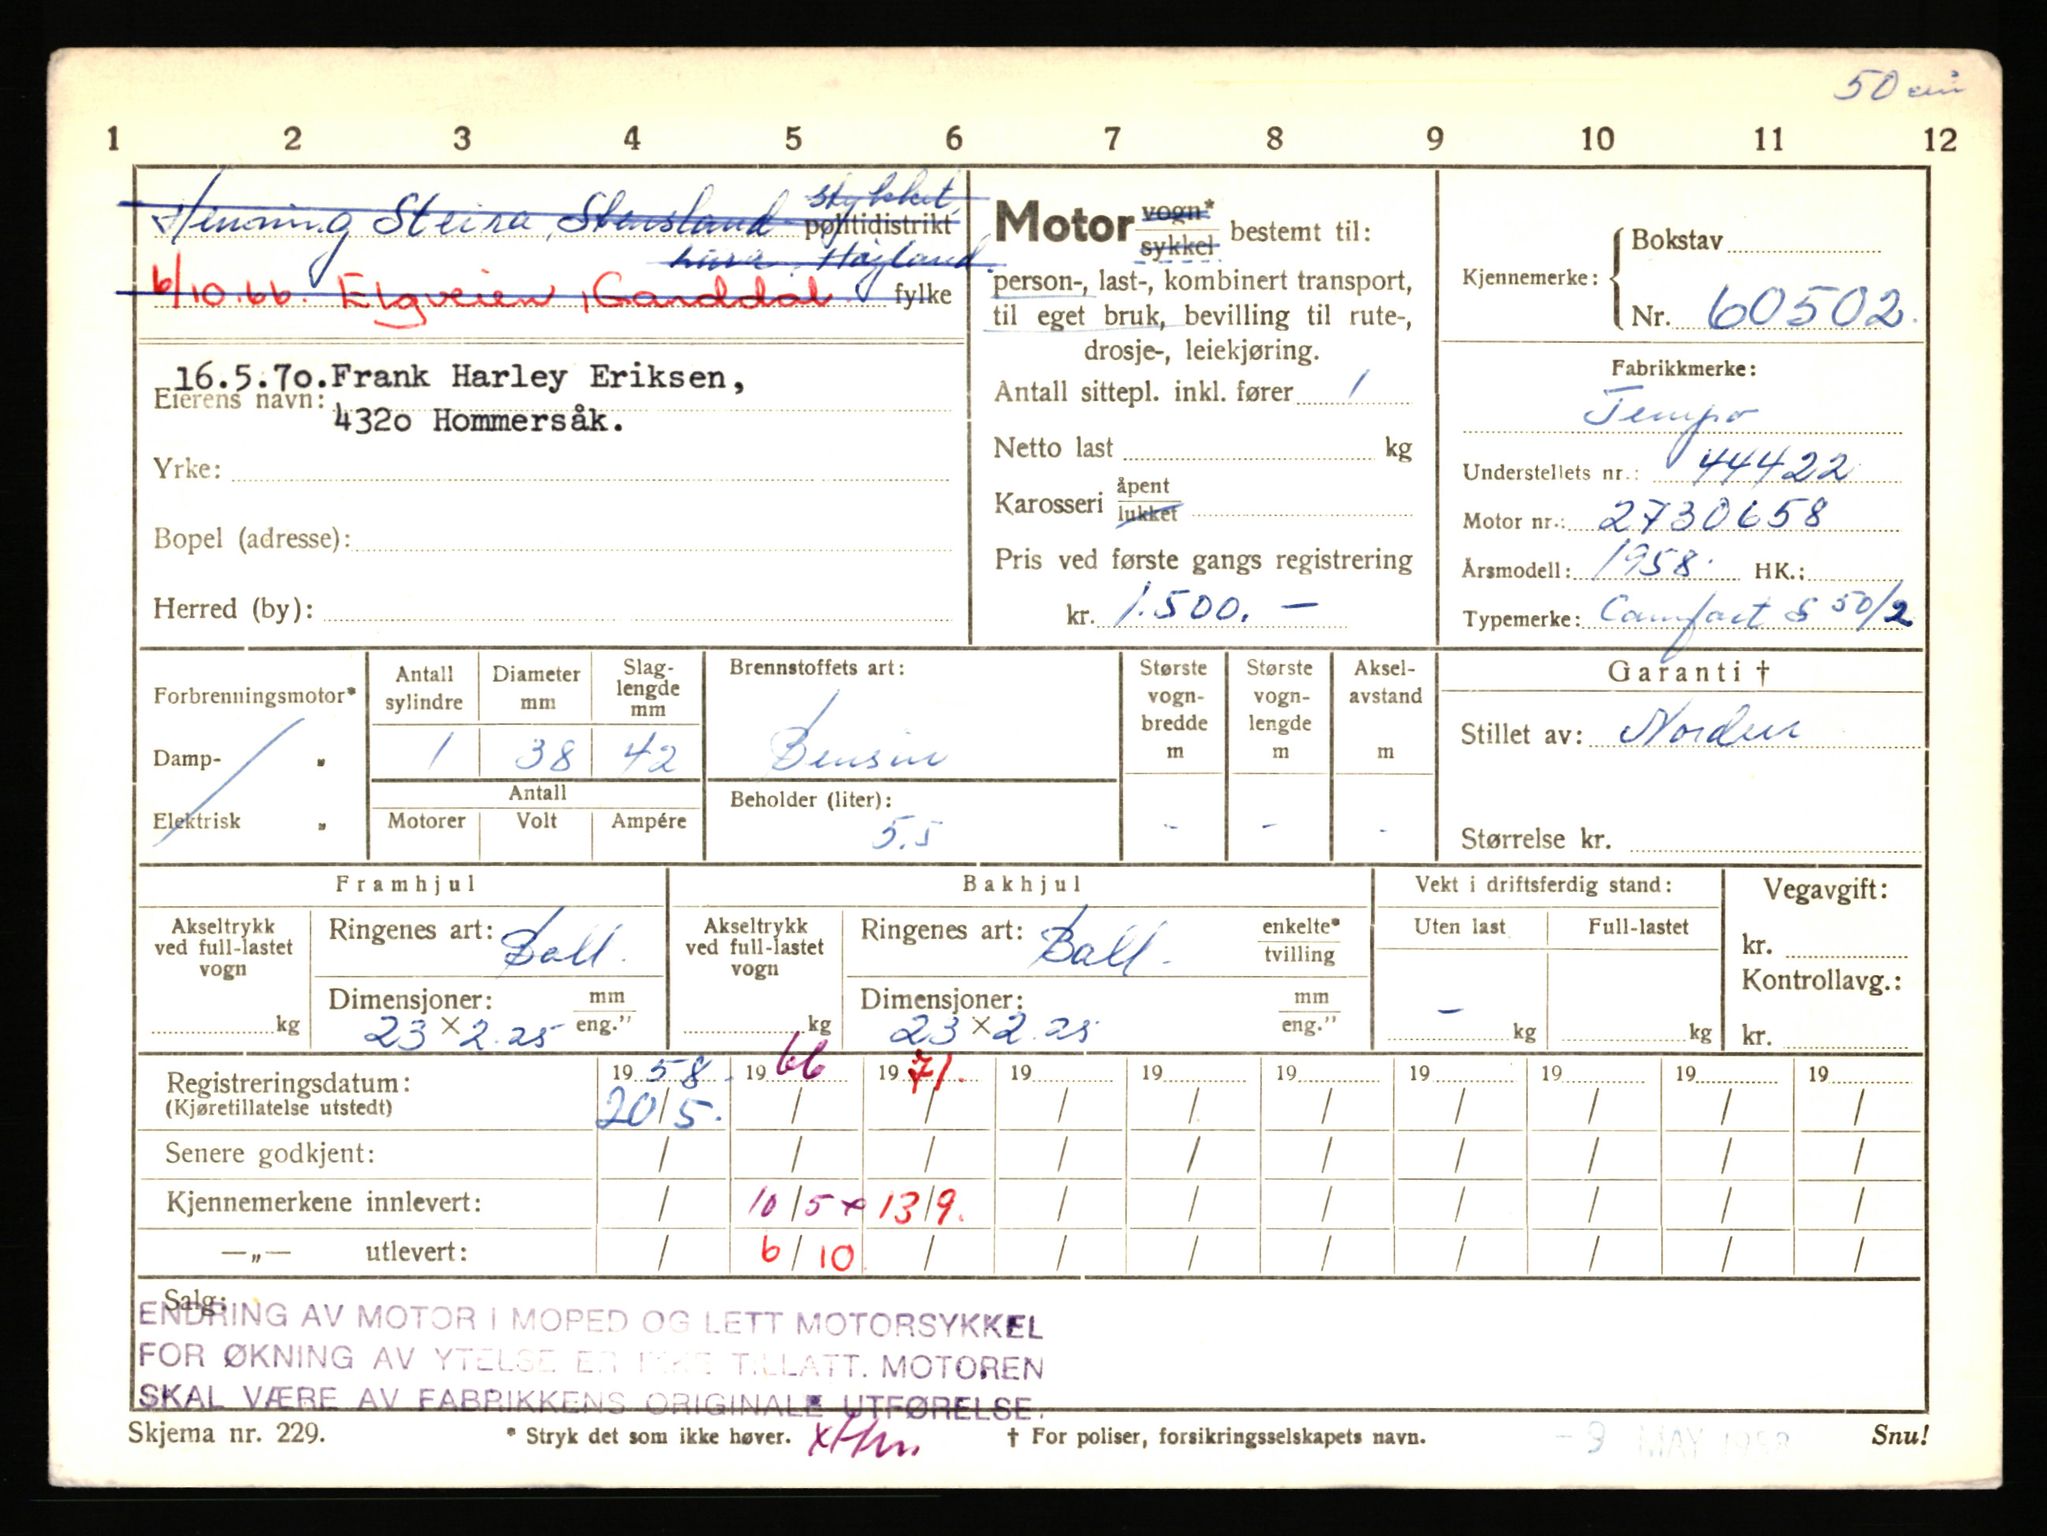 50 cm
1 2 3 4 5 6 7 8 9 10 11 12
Henning Steira, Stensland stykket, politidistrikt
Høyland
6/10.66. Elgveien, Ganddal fylke
16.5.7o.Frank Harley Eriksen,
Eierens navn:
432o Hommersåk.
Yrke:
Bopel (adresse):
Herred (by):
Motor vogn* sykkel bestemt til:
person-, last-, kombinert transport,
til eget bruk, bevilling til rute-,
drosje-, leiekjøring.
Antall sittepl. inkl. fører 1
Netto last kg
Karosseri åpent lukket
Pris ved første gangs registrering
kr. 1.500.—
Kjennemerke: Bokstav
Nr. 60502.
Fabrikkmerke:
Tempo
Understellets nr.: 44422
Motor nr.: 2730658
Årsmodell: 1958. HK.:
Typemerke: Comfort S 50/2
Forbrenningsmotor*
Damp- "
Elektrisk "
Antall sylindre
Diameter mm
Slag-lengde mm
1 38 42
Antall
Motorer Volt Ampére
Brennstoffets art:
Bensin
Beholder (liter):
5.5
Største vogn-bredde m
Største vogn-lengde m
Aksel-avstand m
- - -
Garanti †
Stillet av: Norden
Størrelse kr.
Framhjul
Akseltrykk ved full-lastet vogn
kg
Ringenes art: Ball.
Dimensjoner: mm eng."
23 × 2.25
Bakhjul
Akseltrykk ved full-lastet vogn
kg
Ringenes art: Ball. enkelte* tvilling
Dimensjoner: mm eng."
23 × 2.25
Vekt i driftsferdig stand:
Uten last Full-lastet
- kg kg
Vegavgift:
kr.
Kontrollavg.:
kr.
Registreringsdatum: 19 58. 19 66 19 71. 19 19 19 19 19 19 19
(Kjøretillatelse utstedt) 20/5. / / / / / / / / /
Senere godkjent: / / / / / / / / / /
Kjennemerkene innlevert: / 10/5 x 13/9. / / / / / / /
—„— utlevert: / 6/10 / / / / / / / /
Salg:
ENDRING AV MOTOR I MOPED OG LETT MOTORSYKKEL
FOR ØKNING AV YTELSE ER IKKE TILLATT. MOTOREN
SKAL VÆRE AV FABRIKKENS ORIGINALE UTFØRELSE.
Skjema nr. 229. * Stryk det som ikke høver. † For poliser, forsikringsselskapets navn. -9 MAY 1958 Snu!